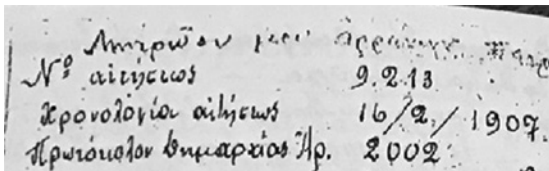 Μητρῷον μου ἀρρένων
Nº αἰτήσεως 9.213.
Χρονολογία αἰτήσεως 16/2./1907
Πρωτόκολον δημαρχίας Ἀρ. 2002